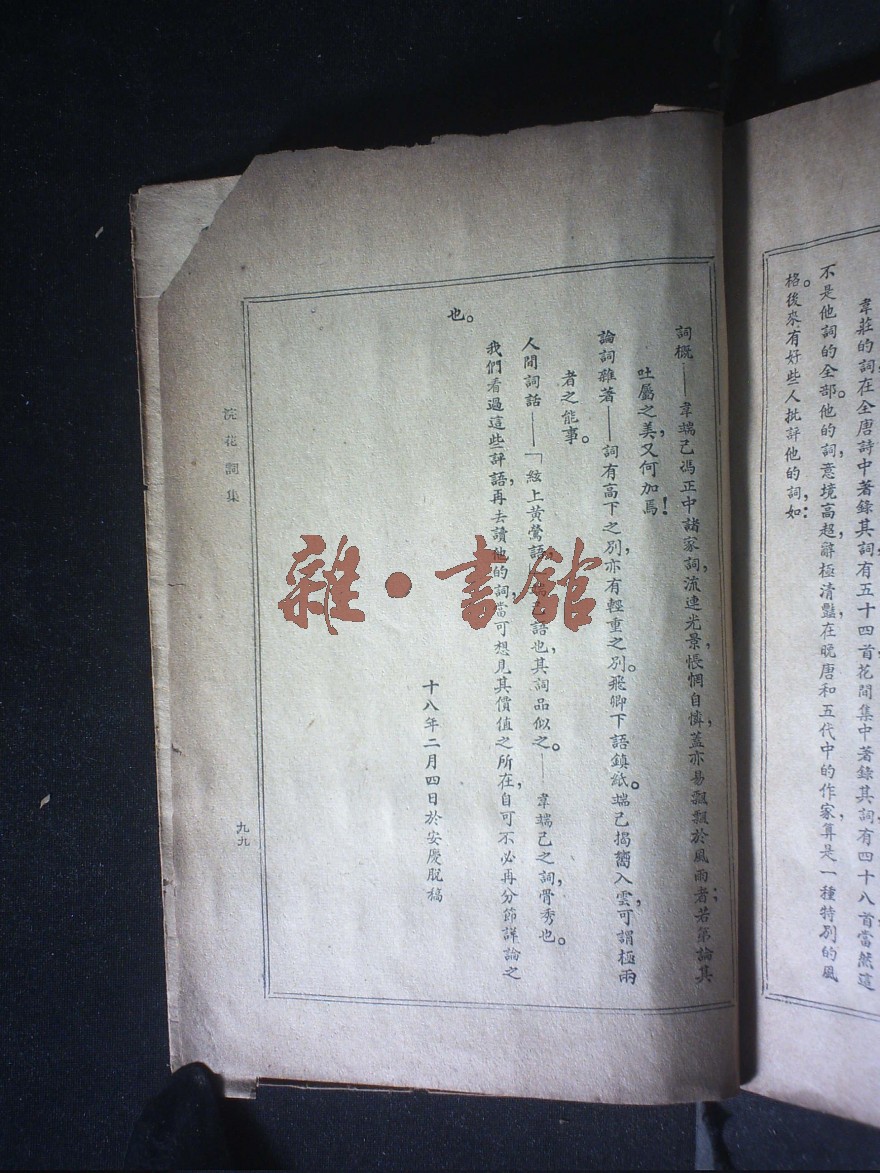 韋莊的詞在全唐詩中著錄其詞有五十四首花間集中著錄其詞有四十八首當然這
不是他詞的全部。他的詞，意境高超，辭極清豔，在晚唐和五代中的作家，算是一種特別的風
格。後來有好些人批評他的詞，如：
詞概——韋端己馮正中諸家詞，流連光景，惆悵自憐，蓋亦易飄颺於風雨者；若第論其
吐屬之美，又何加焉！
論詞雜著——詞有高下之別，亦有輕重之別。飛卿下語鎮紙。端己揭響入雲，可謂極兩
者之能事。
人間詞話——「絃上黃鶯語」端己語也，其詞品似之。——韋端己之詞，骨秀也。
我們看過這些評語，再去讀他的詞，當可想見其價值之所在，自可不必再分節詳論之
也。
十八年二月四日於安慶脫稿
浣花詞集
九九
雜·書館